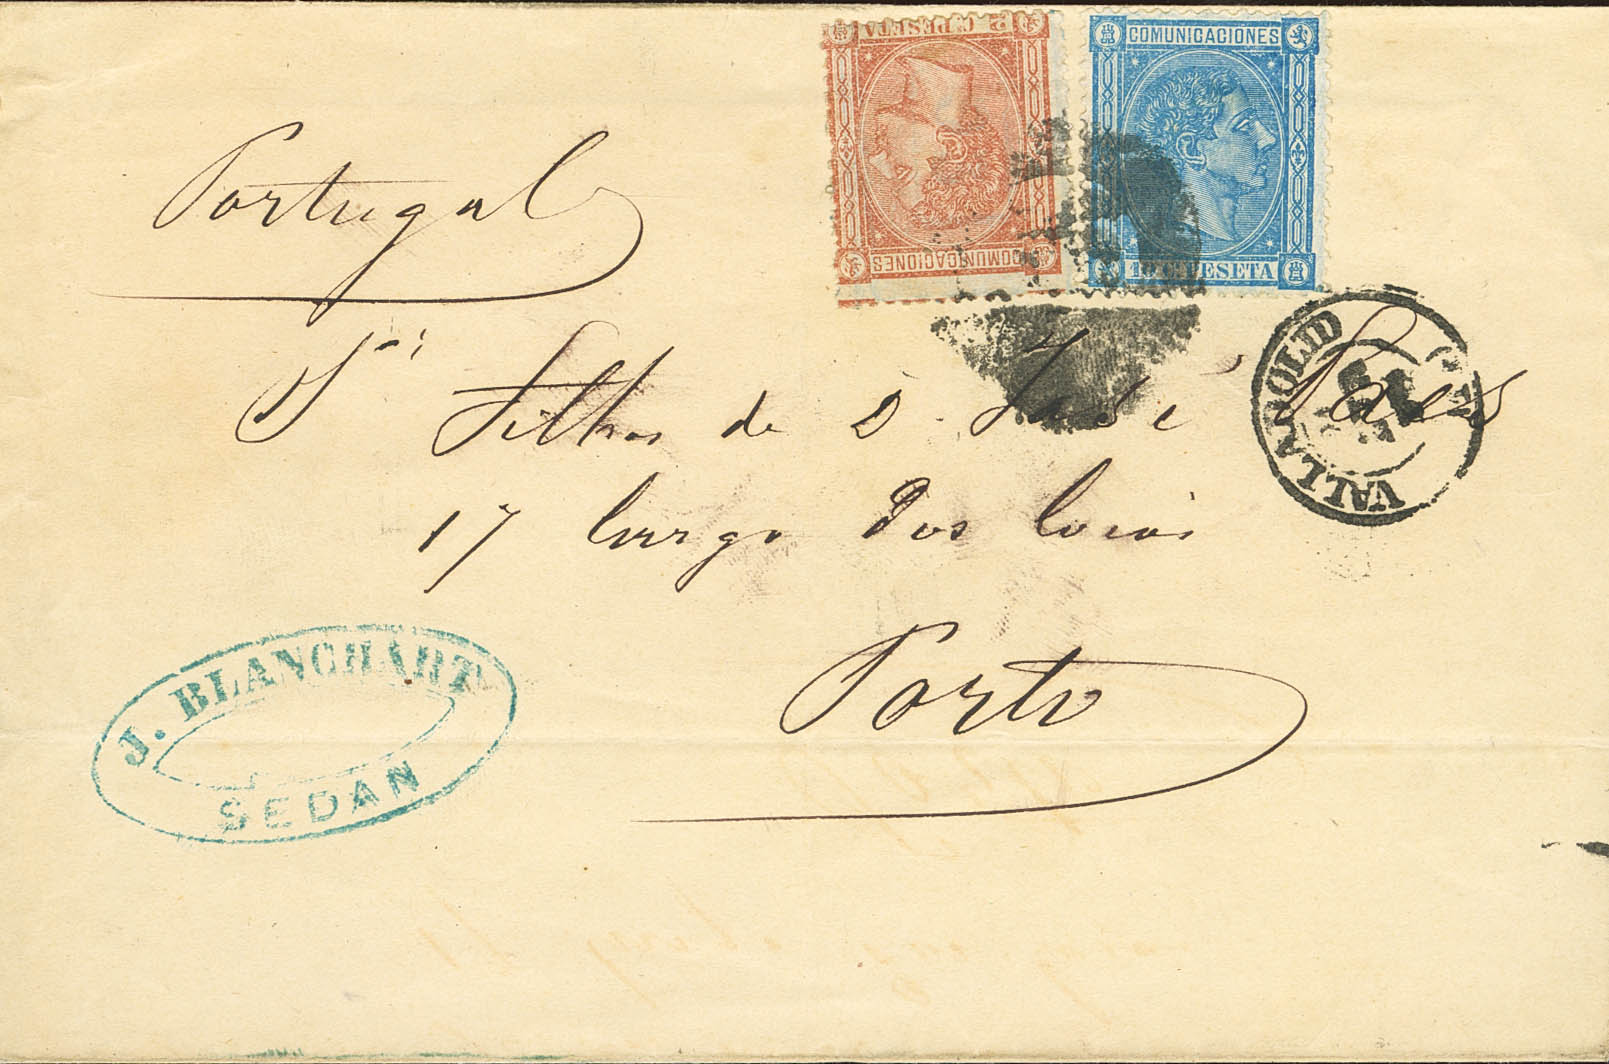 C. PESETA
COMUNICACIONES
COMUNICACIONES
10 C. PESETA
Portugal
VALLADOLID
Filhos de D. José Paes
17 largo dos Loios
Porto
J. BLANCHART
SEDAN